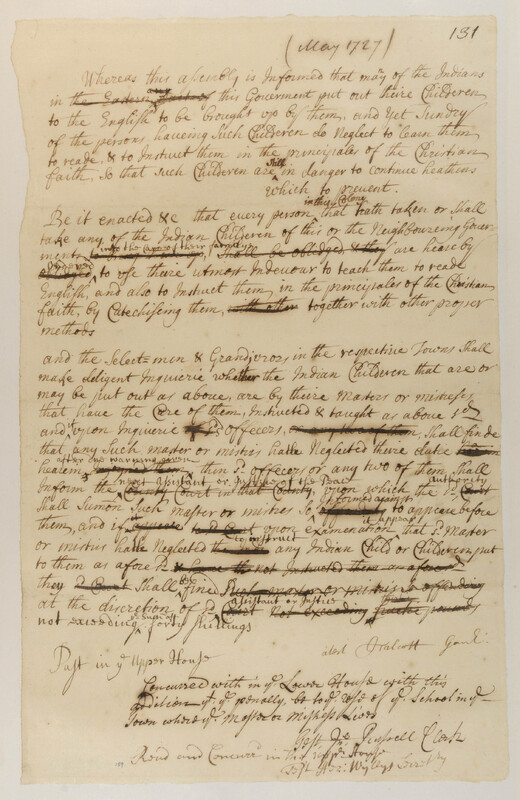 131
(May 1727)
Whereas this assembly is Informed that many of the Indians
in the Eastern this Goverment put out there Childeren
to the English to be brought up by them, and yet Sundry
of the persons haveing Such Childeren do Neglect to learn them
to reade, & to Instruct them in the principales of the Christian
faith, So that Such Childeren are Still in danger to continue heathens
which to prevent.
in this Colony
Be it enacted &c that every person that hath taken or Shall
take any of the Indian Childeren of this or the Neighboureing Gover-
ments into the care of their family Shall be obledged & they are heareby
to use there utmost Indevour to teach them to reade
English, and also to Instruct them in the principales of the Christian
faith, by Catechiseing them, together with other proper
methods
and the Select=men & Grandjurors in the respective Towns Shall
make deligent Inquierie whether the Indian Childeren that are or
may be put out as above, are by there Masters or mistreses
that have the Care of them, Instructed & taught as above sd
and upon Inquierie sd officers, Shall finde
that any Such master or mistris hath Neglected there dutie
after due warning given
hearein then sd officers or any two of them, Shall
next Asistant or Justice of the Peace
Inform the County Court in that County, upon which the sd authority
Shall Sumon Such master or mistris So Informed against to appeare before
them, and if upon examination it appear that sd Master
or mistris hath Neglected to instruct any Indian Child or Childeren put
to them as afore sd
they Shall be fined Such master or mistris So offending
at the discretion of sd Assistant or Justice Not Exceeding pounds
not exceeding ye sum of forty shillings
Past in ye Upper House
Concurred with in ye Lower House with this
Adition yt ye penalty, be to ye Use of ye School in ye
Town where ye Master or Mistress Lives
Test Russell Clerk
Read and Concurd in the Upper House
Test Hez: Wyllys Secretry